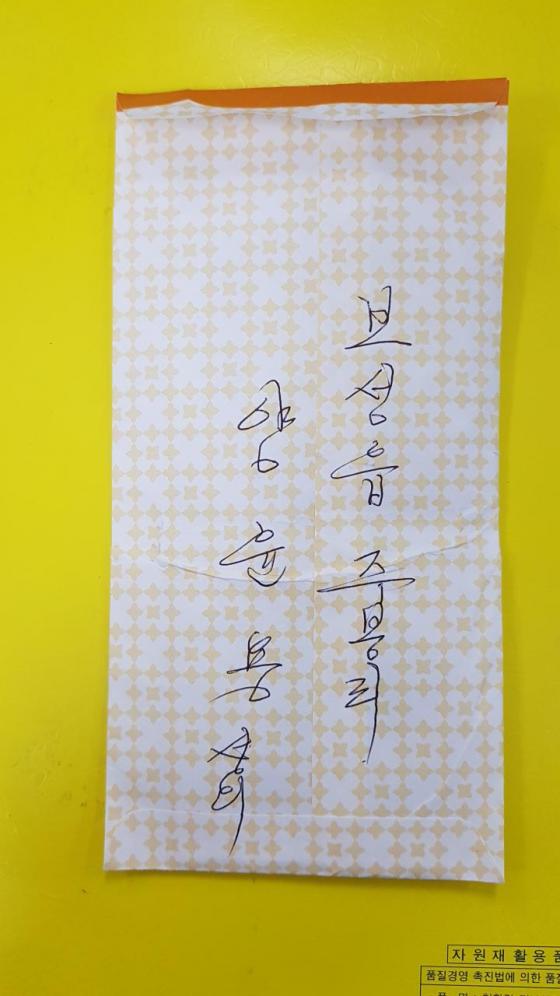 보성읍 주봉리
양 윤 용
자 원 재 활 용 품
품질경영 촉진법에 의한 품질
품 명